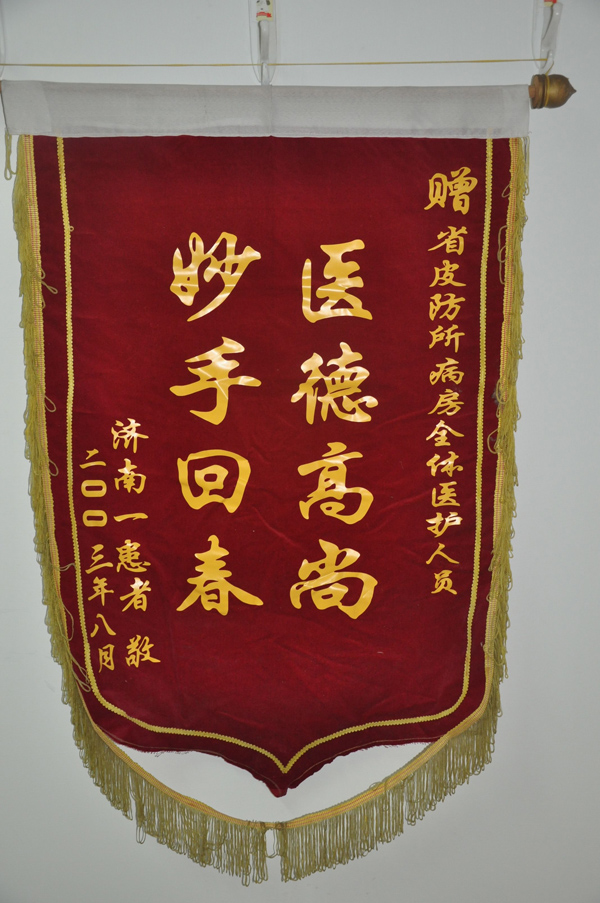 赠省皮防所病房全体医护人员
医德高尚
妙手回春
济南一患者 敬
二〇〇三年八月